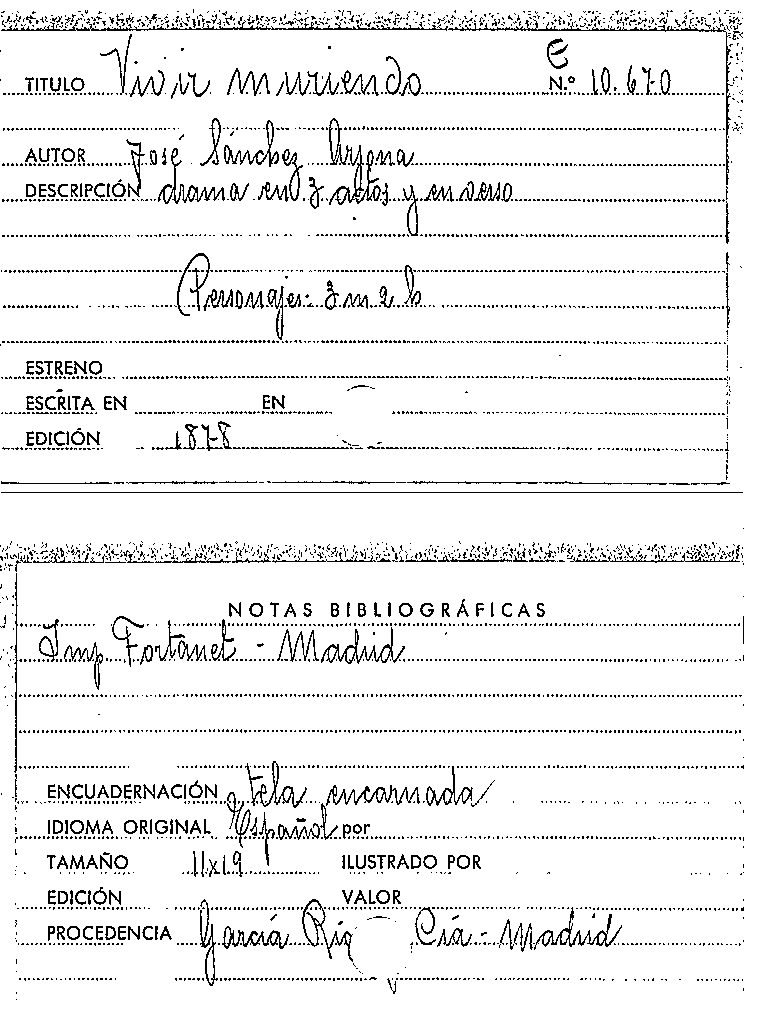 E
TITULO Vivir muriendo N.º 10.670
AUTOR José Sánchez Arjona
DESCRIPCIÓN drama en 3 actos y en verso
Personajes: 3 m 2 h
ESTRENO
ESCRITA EN EN
EDICIÓN 1878
NOTAS BIBLIOGRÁFICAS
Imp. Fortanet - Madrid
ENCUADERNACIÓN tela encarnada
IDIOMA ORIGINAL Español por
TAMAÑO 11x19 ILUSTRADO POR
EDICIÓN VALOR
PROCEDENCIA García Cía - Madrid